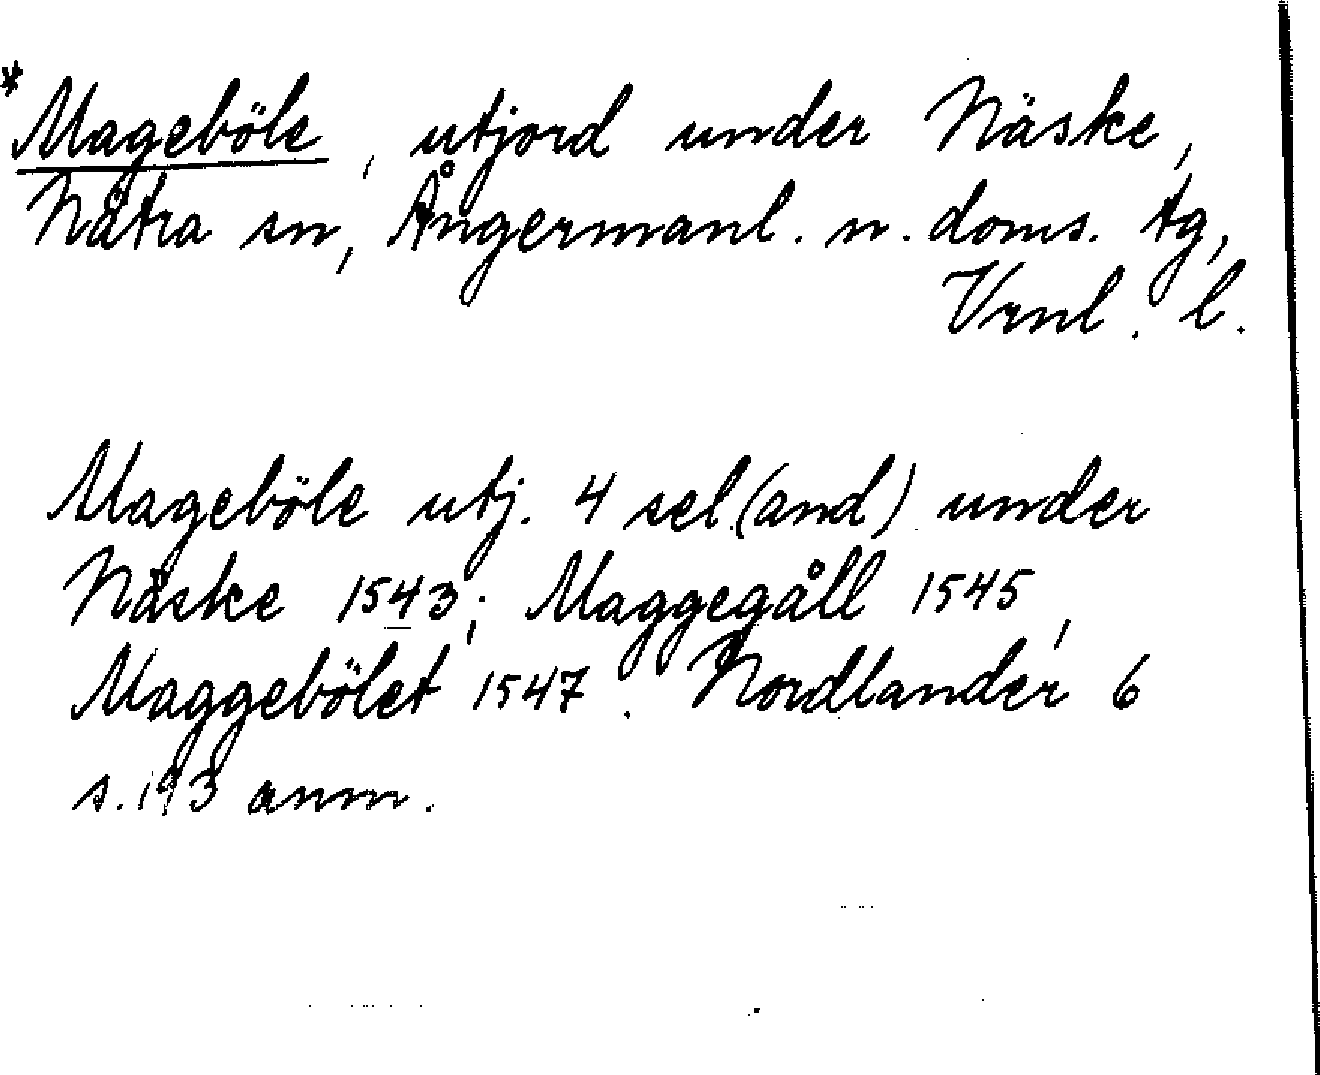 *Mageböle, utjord under Näske,
Nätra sn, Ångermanl. n. doms. tg,
Vrnl. l.
Mageböle utj. 4 sel.(and) under
Näske 1543; Maggegåll 1545,
Maggebölet 1547. Nordlander 6
s. 193 anm.